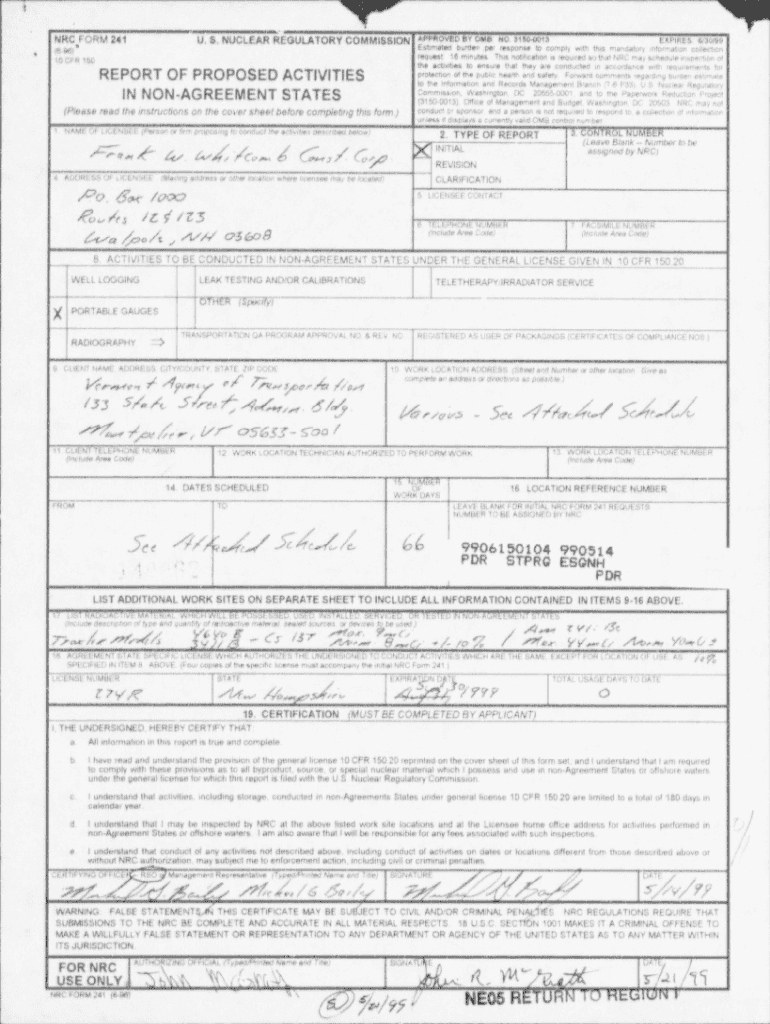 NRC FORM 241
(6-96)
10 CFR 150
U. S. NUCLEAR REGULATORY COMMISSION
REPORT OF PROPOSED ACTIVITIES
IN NON-AGREEMENT STATES
(Please read the instructions on the cover sheet before completing this form.)
APPROVED BY OMB NO. 3150-0013 EXPIRES 6/30/99
Estimated burden per response to comply with this mandatory information collection
request: 15 minutes. This notification is required so that NRC may schedule inspection of
the activities to ensure that they are conducted in accordance with requirements for
protection of the public health and safety. Forward comments regarding burden estimate
to the Information and Records Management Branch (T-6 F33), U.S. Nuclear Regulatory
Commission, Washington, DC 20555-0001, and to the Paperwork Reduction Project
(3150-0013), Office of Management and Budget, Washington, DC 20503. NRC may not
conduct or sponsor, and a person is not required to respond to, a collection of information
unless it displays a currently valid OMB control number.
1. NAME OF LICENSEE (Person or firm proposing to conduct the activities described below)
Frank W. Whitcomb Const. Corp
2. TYPE OF REPORT
X INITIAL
REVISION
CLARIFICATION
3. CONTROL NUMBER
(Leave Blank – Number to be
assigned by NRC)
4. ADDRESS OF LICENSEE (Mailing address or other location where licensee may be located)
P.O. Box 1000
Routes 12 & 123
Walpole, NH 03608
5. LICENSEE CONTACT
6. TELEPHONE NUMBER
(Include Area Code)
7. FACSIMILE NUMBER
(Include Area Code)
8. ACTIVITIES TO BE CONDUCTED IN NON-AGREEMENT STATES UNDER THE GENERAL LICENSE GIVEN IN 10 CFR 150.20
WELL LOGGING
LEAK TESTING AND/OR CALIBRATIONS
TELETHERAPY/IRRADIATOR SERVICE
X PORTABLE GAUGES
OTHER (Specify)
RADIOGRAPHY ⇒
TRANSPORTATION QA PROGRAM APPROVAL NO. & REV. NO.
REGISTERED AS USER OF PACKAGINGS (CERTIFICATES OF COMPLIANCE NOS.)
9. CLIENT NAME, ADDRESS, CITY/COUNTY, STATE, ZIP CODE
Vermont Agency of Transportation
133 State Street, Admin. Bldg
Montpelier, VT 05633-5001
10. WORK LOCATION ADDRESS (Street and Number or other location. Give as
complete an address or directions as possible.)
Various - See Attached Schedule
11. CLIENT TELEPHONE NUMBER
(Include Area Code)
12. WORK LOCATION TECHNICIAN AUTHORIZED TO PERFORM WORK
13. WORK LOCATION TELEPHONE NUMBER
(Include Area Code)
14. DATES SCHEDULED
15. NUMBER
OF
WORK DAYS
16. LOCATION REFERENCE NUMBER
FROM
TO
LEAVE BLANK FOR INITIAL NRC FORM 241 REQUESTS
NUMBER TO BE ASSIGNED BY NRC
See Attached Schedule
66
9906150104 990514
PDR STPRG ESGNH
PDR
LIST ADDITIONAL WORK SITES ON SEPARATE SHEET TO INCLUDE ALL INFORMATION CONTAINED IN ITEMS 9-16 ABOVE.
17. LIST RADIOACTIVE MATERIAL, WHICH WILL BE POSSESSED, USED, INSTALLED, SERVICED, OR TESTED IN NON-AGREEMENT STATES
(Include description of type and quantity of radioactive material, sealed sources, or devices to be used.)
Troxler Models 4640 B
3411 B - Cs 137 Max. 9 mCi
Norm 8 mCi +/- 10% / Am 241: Be
Max. 44 mCi Norm 40 mCi ±
10%
18. AGREEMENT STATE SPECIFIC LICENSE WHICH AUTHORIZES THE UNDERSIGNED TO CONDUCT ACTIVITIES WHICH ARE THE SAME, EXCEPT FOR LOCATION OF USE, AS
SPECIFIED IN ITEM 8. ABOVE. (Four copies of the specific license must accompany the initial NRC Form 241.)
LICENSE NUMBER
274R
STATE
New Hampshire
EXPIRATION DATE
1999
TOTAL USAGE DAYS TO DATE
0
19. CERTIFICATION (MUST BE COMPLETED BY APPLICANT)
I, THE UNDERSIGNED, HEREBY CERTIFY THAT:
a. All information in this report is true and complete.
b. I have read and understand the provision of the general license 10 CFR 150.20 reprinted on the cover sheet of this form set; and I understand that I am required
to comply with these provisions as to all byproduct, source, or special nuclear material which I possess and use in non-Agreement States or offshore waters
under the general license for which this report is filed with the U.S. Nuclear Regulatory Commission.
c. I understand that activities, including storage, conducted in non-Agreements States under general license 10 CFR 150.20 are limited to a total of 180 days in
calendar year.
d. I understand that I may be inspected by NRC at the above listed work site locations and at the Licensee home office address for activities performed in
non-Agreement States or offshore waters. I am also aware that I will be responsible for any fees associated with such inspections.
e. I understand that conduct of any activities not described above, including conduct of activities on dates or locations different from those described above or
without NRC authorization, may subject me to enforcement action, including civil or criminal penalties.
CERTIFYING OFFICER - RSO or Management Representative (Typed/Printed Name and Title)
Michael G Bailey Michael G Bailey
SIGNATURE
Michael G Bailey
DATE
5/14/99
WARNING: FALSE STATEMENTS IN THIS CERTIFICATE MAY BE SUBJECT TO CIVIL AND/OR CRIMINAL PENALTIES. NRC REGULATIONS REQUIRE THAT
SUBMISSIONS TO THE NRC BE COMPLETE AND ACCURATE IN ALL MATERIAL RESPECTS. 18 U.S.C. SECTION 1001 MAKES IT A CRIMINAL OFFENSE TO
MAKE A WILLFULLY FALSE STATEMENT OR REPRESENTATION TO ANY DEPARTMENT OR AGENCY OF THE UNITED STATES AS TO ANY MATTER WITHIN
ITS JURISDICTION.
FOR NRC
USE ONLY
AUTHORIZING OFFICIAL (Typed/Printed Name and Title)
John McGrath
SIGNATURE
John R. McGrath
DATE
5/21/99
NRC FORM 241 (6-96)
5/21/99
NE05 RETURN TO REGION I